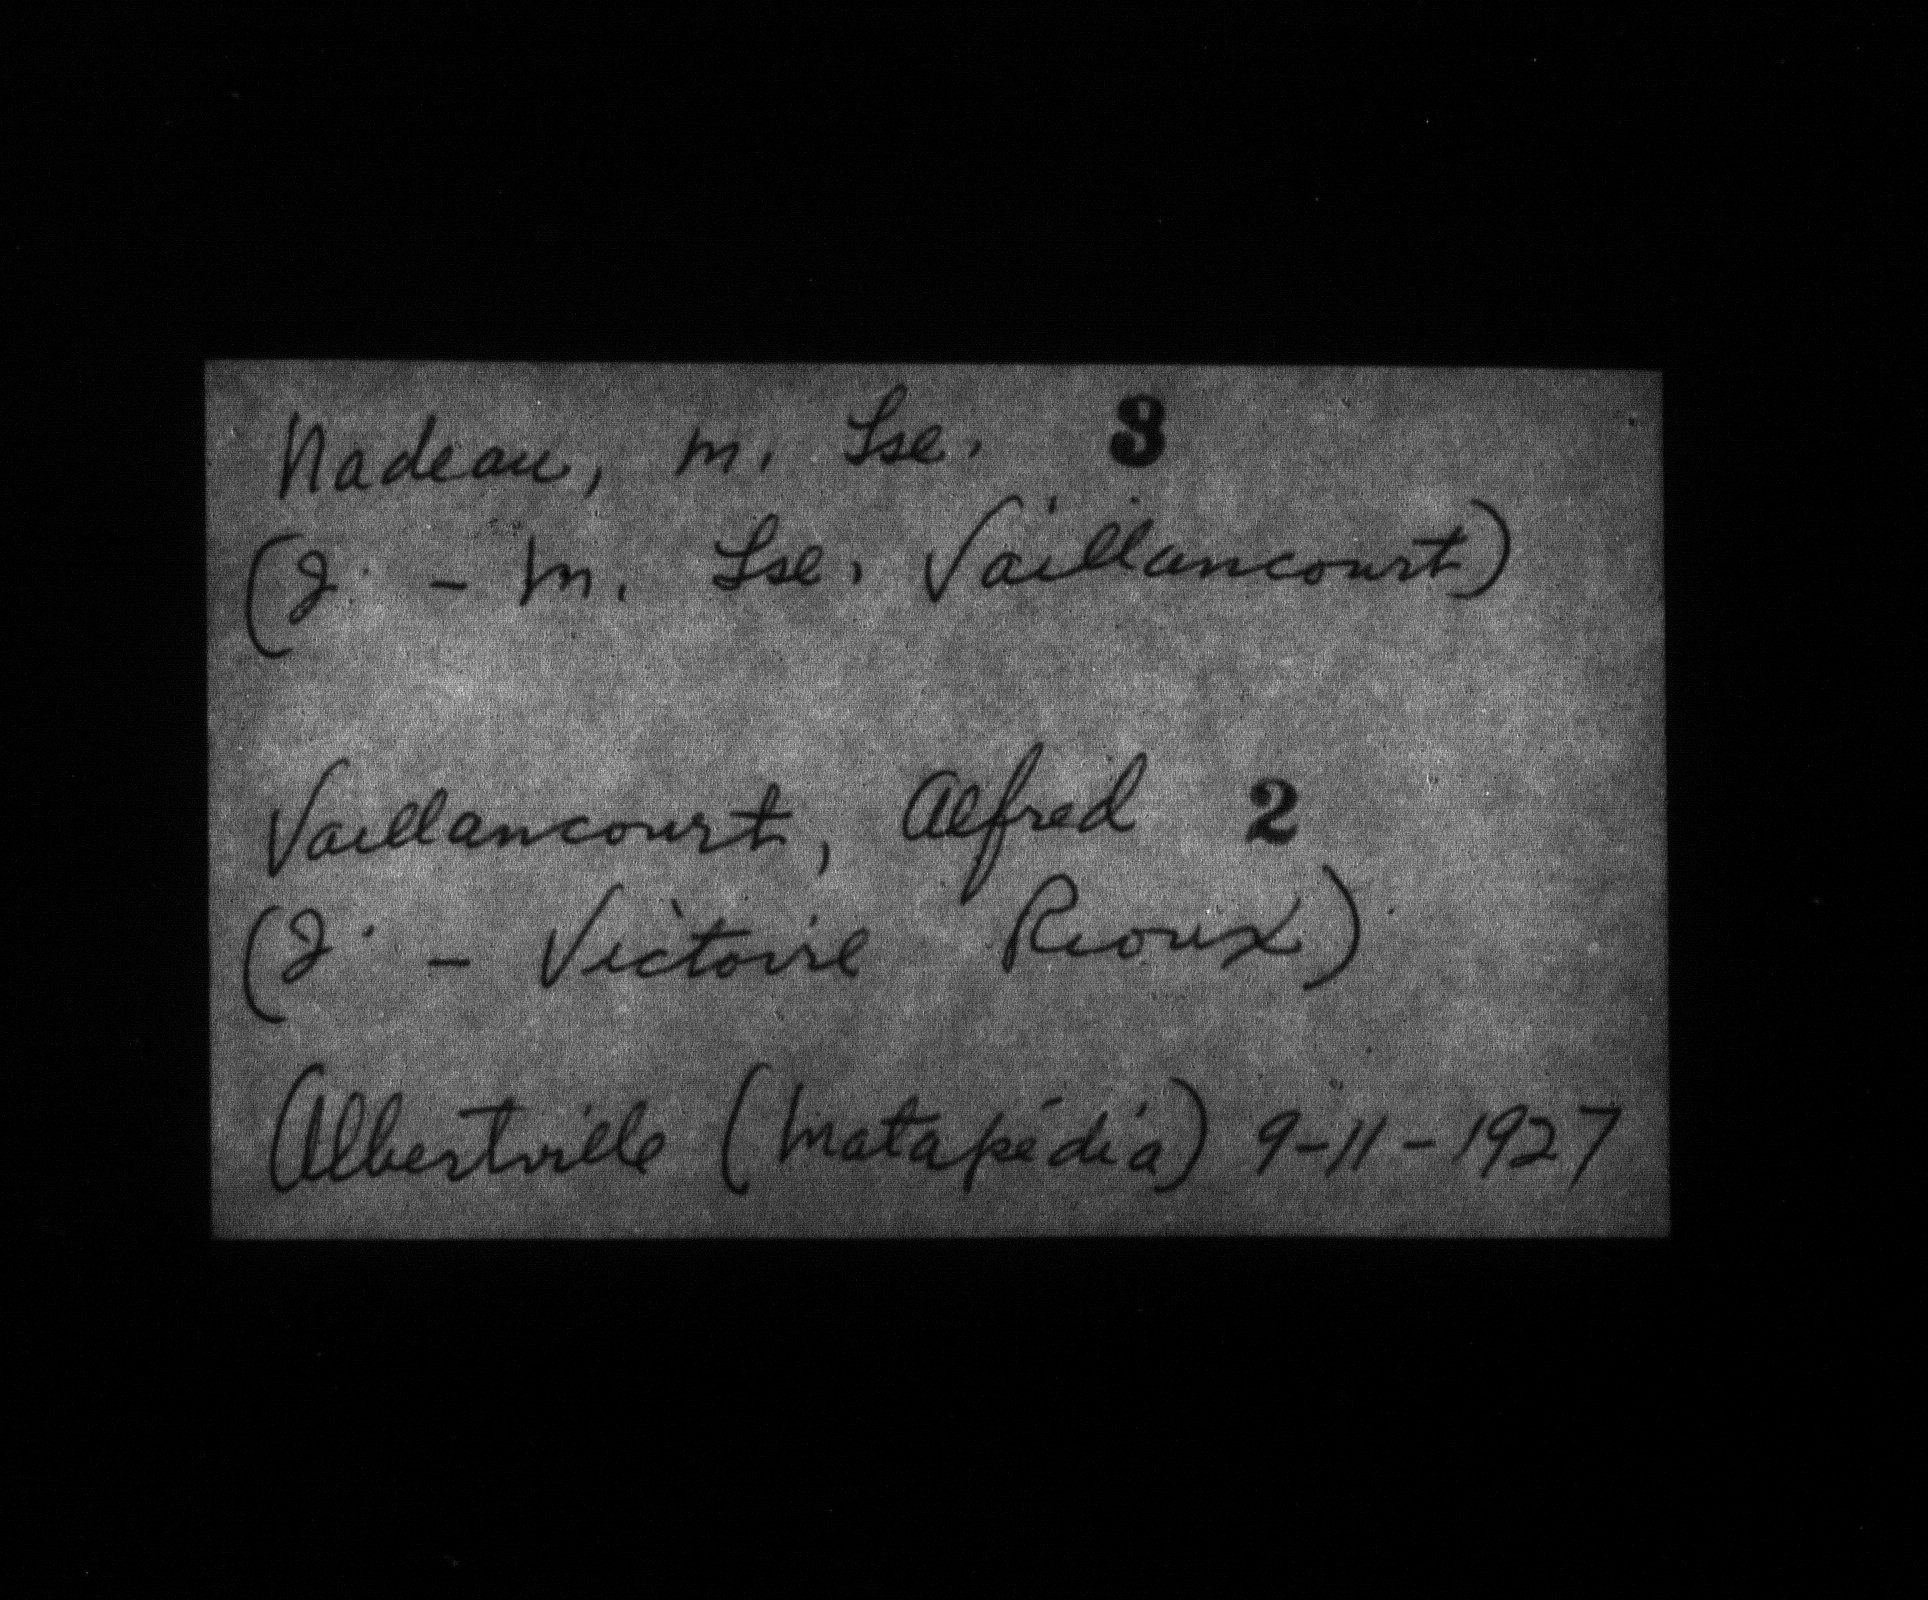 Nadeau, m. Lse. 3
(J. - M. Lse. Vaillancourt)
Vaillancourt, Alfred 2
(J. - Victoire Rioux)
Albertville (Matapédia) 9-11-1927